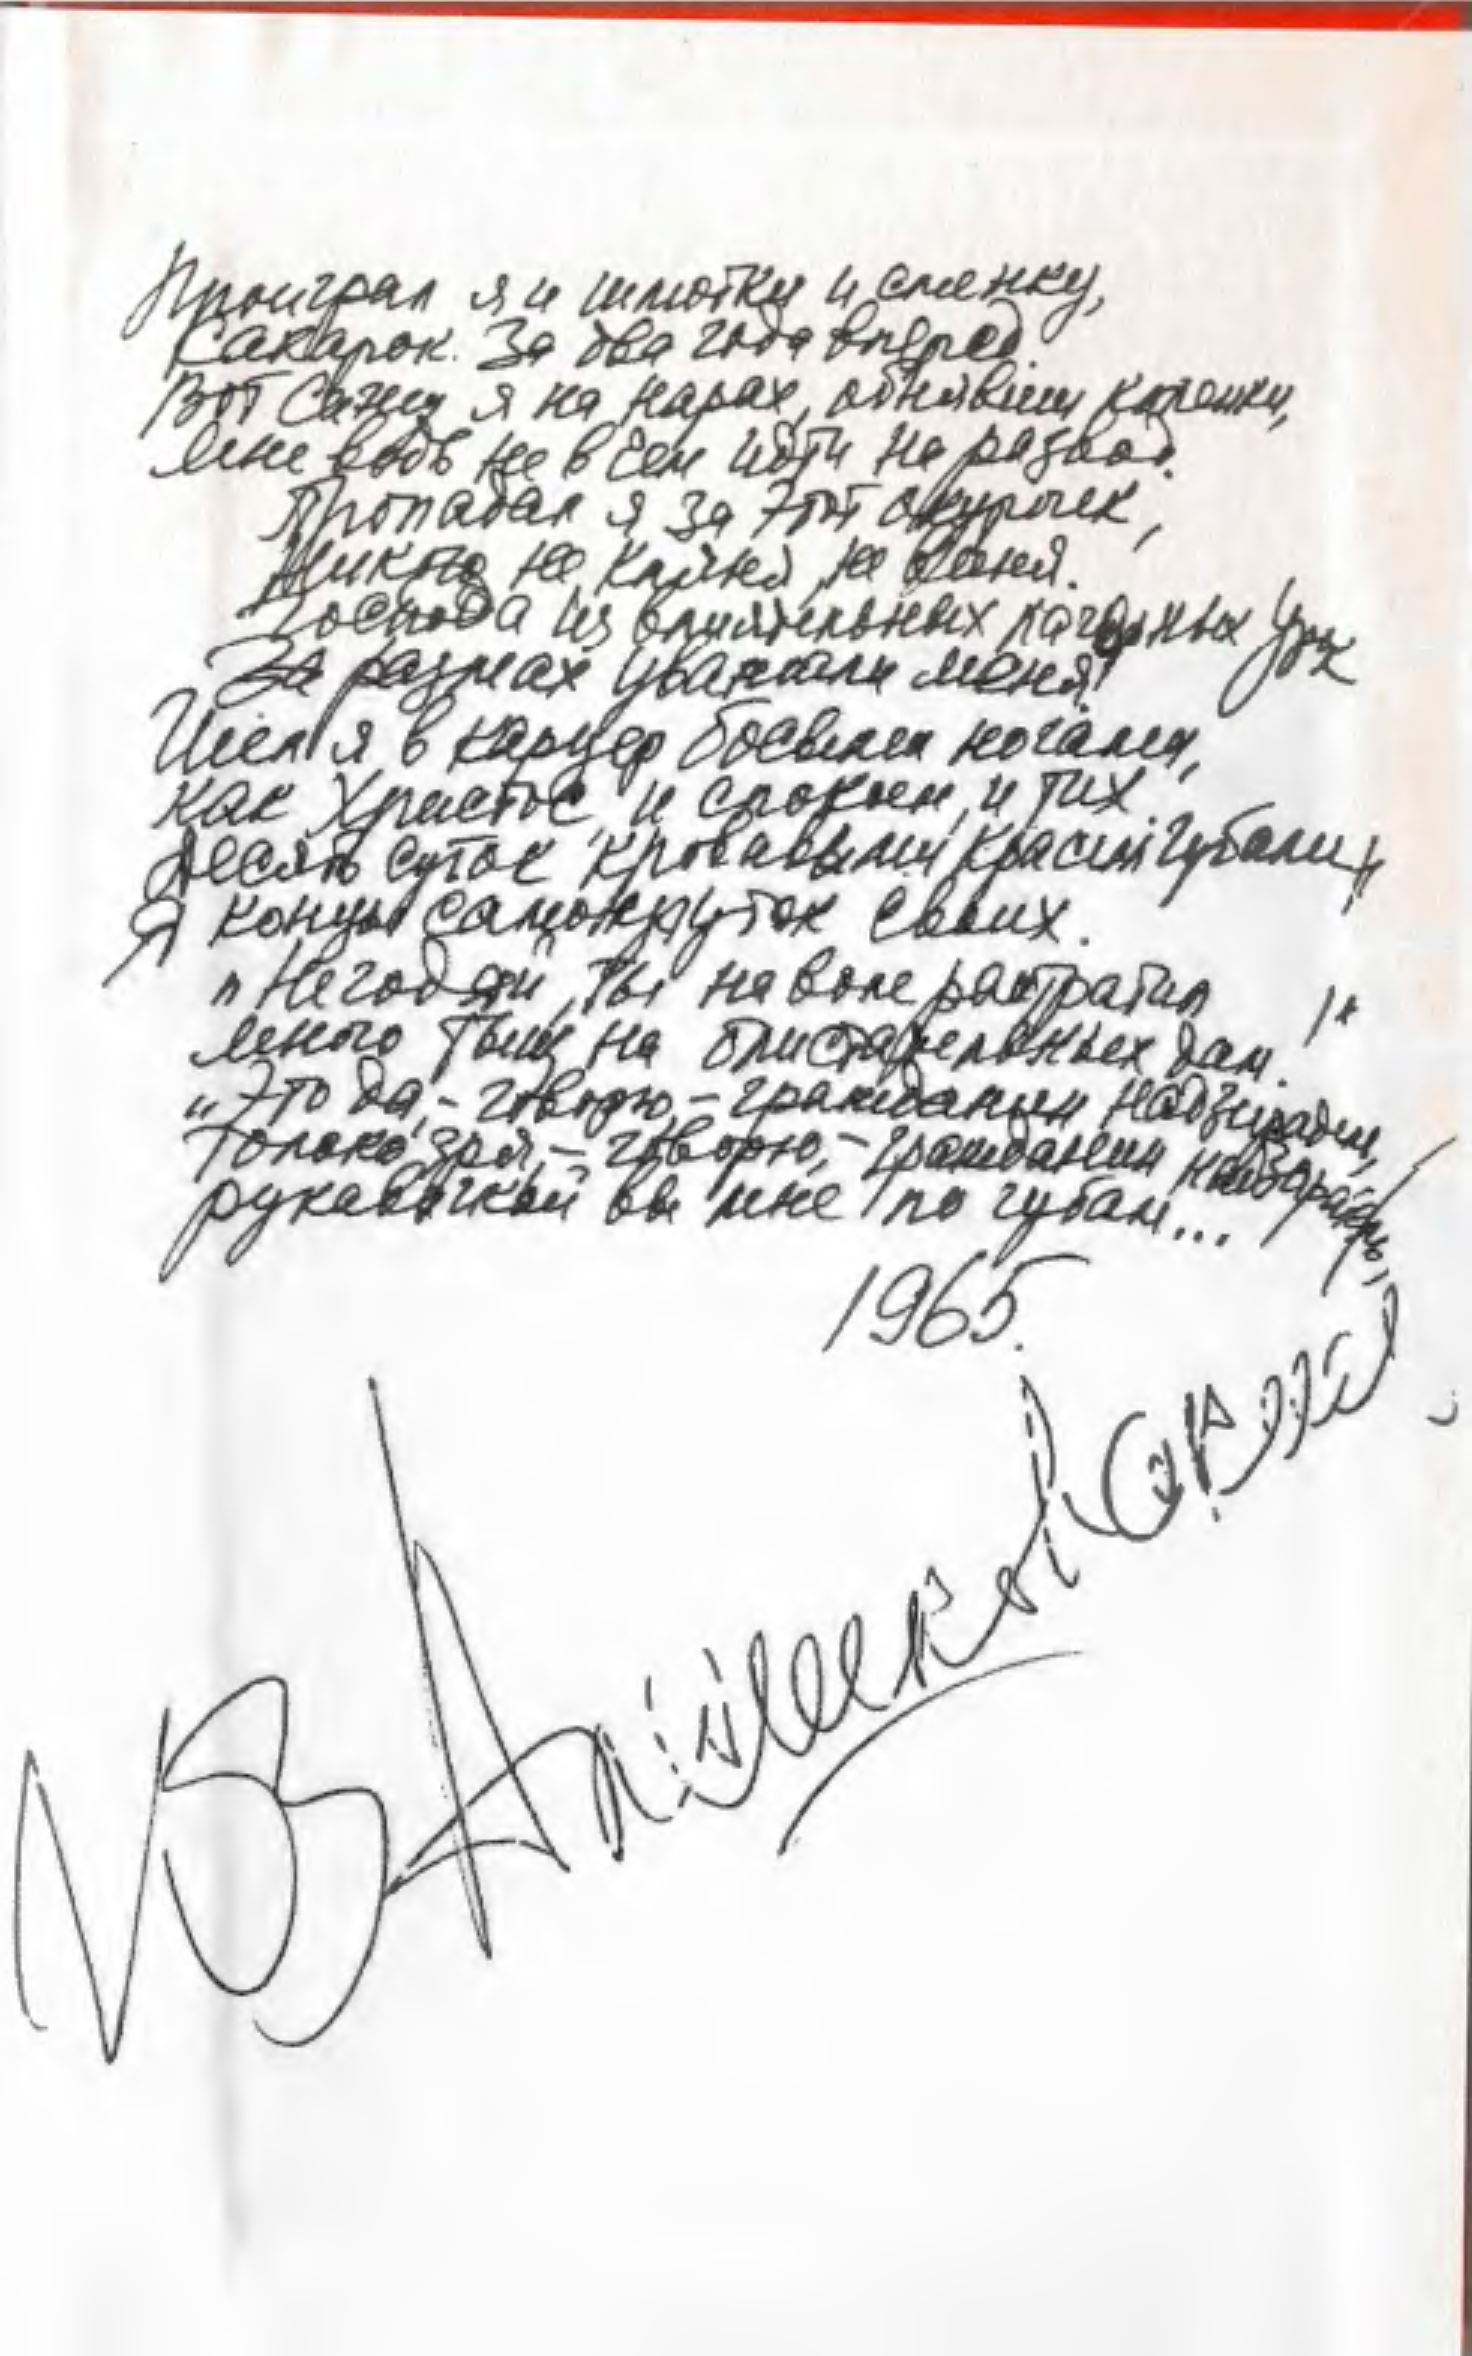 Проиграл я и шмотки и сменку,
Сахарок. За два года вперед.
Вот сижу я на нарах, обнявши коленки,
Мне ведь не в чем идти на развод.
Пропадал я за этот окурочек,
Никого не кляня, не виня.
Господа из влиятельных лагерных урок
За размах уважали меня!
Шел я в карцер босыми ногами,
Как Христос, и спокоен, и тих.
Десять суток кровавыми красил губами
Я концы самокруток своих.
"Негодяй, ты на воле растратил
Много тыщ на блистательных дам!"
"Это да, - говорю, - гражданин надзиратель,
Только зря, - говорю, - гражданин надзиратель,
рукавичкой вы мне по губам...
1965.